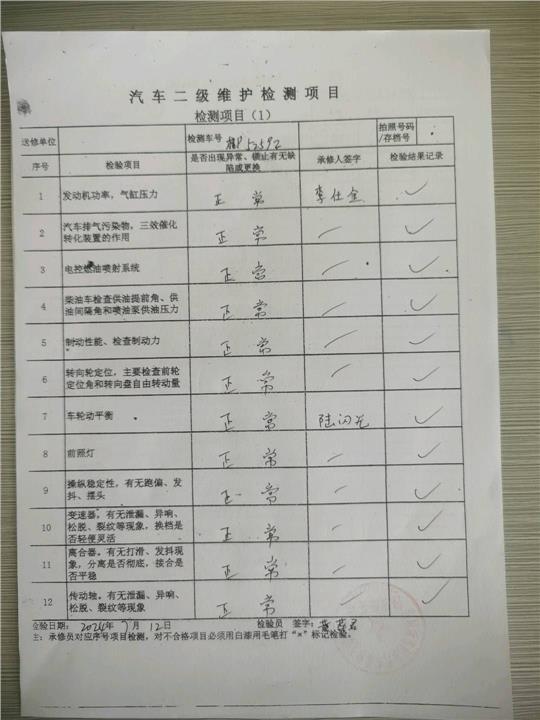 汽车二级维护检测项目
检测项目(1)
送修单位 检测车号 拍照号码/存档号
序号 检验项目 是否出现异常、锁止有无缺陷或更换 承修人签字 检验结果记录
1 发动机功率，气缸压力 正常 李仕全 ✓
2 汽车排气污染物，三效催化
转化装置的作用 正常 ✓
3 电控燃油喷射系统 正常 ✓
4 柴油车检查供油提前角、供
油间隔角和喷油泵供油压力 正常 ✓
5 制动性能、检查制动力 正常 ✓
6 转向轮定位，主要检查前轮
定位角和转向盘自由转动量 正常 ✓
7 车轮动平衡 正常 ✓
8 前照灯 正常 ✓
9 操纵稳定性，有无跑偏、发
抖、摆头 正常 ✓
10 变速器，有无泄漏、异响、
松脱、裂纹等现象，换档是
否轻便灵活 正常 ✓
11 离合器，有无打滑、发抖现
象，分离是否彻底，接合是
否平稳 正常 ✓
12 传动轴，有无泄漏、异响、
松脱、裂纹等现象 正常 ✓
验日期： 2024年7月12日 检验员 签字：
主：承修员对应序号项目检测，对不合格项目必须用白漆用毛笔打“×”标记检验。